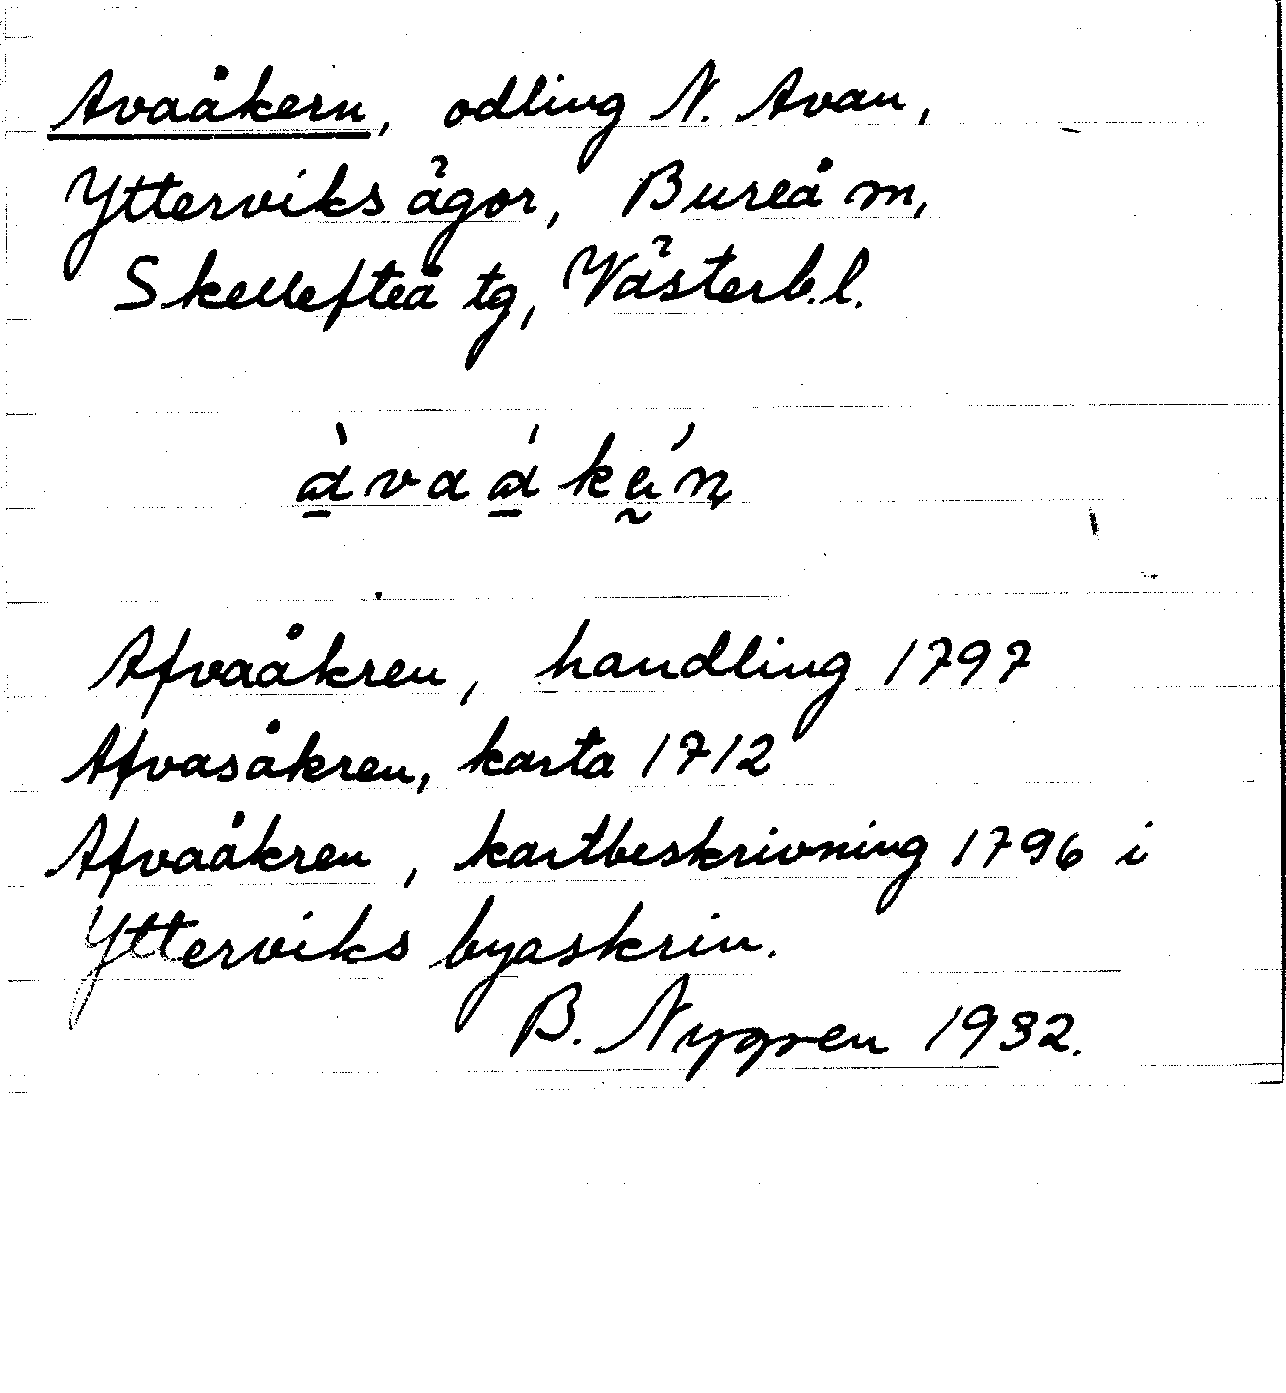 Avaåkern, odling N. Avan,
Ytterviks ägor, Bureå m,
Skellefteå tg, Västerb.l.
Afvaåkren, handling 1797
Afvasåkren, karta 1712
Afvaåkren, kartbeskrivning 1796 i
Ytterviks byaskrin.
B. Nygren 1932.